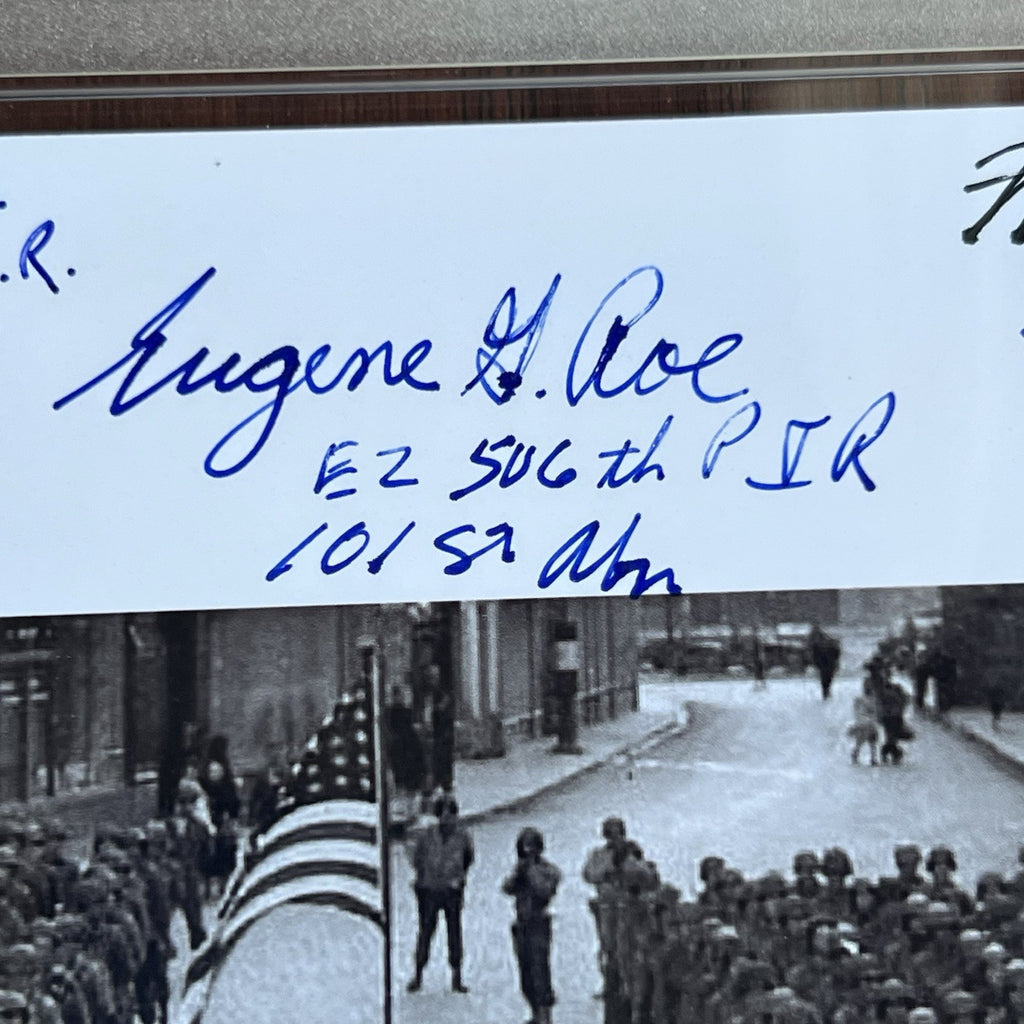 .R.
Eugene G. Roe
E2 506th PIR
101 st Abn